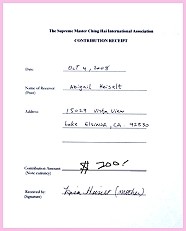 The Supreme Master Ching Hai International Association
CONTRIBUTION RECEIPT
Date: Oct 4, 2008
Name of Receiver: Abigail
(Donor)
Address: 15029 Vista View
Lake Elsinore, CA 92530
Contribution Amount: $ 200
(Note currency)
Received by: (mother)
(Signature)